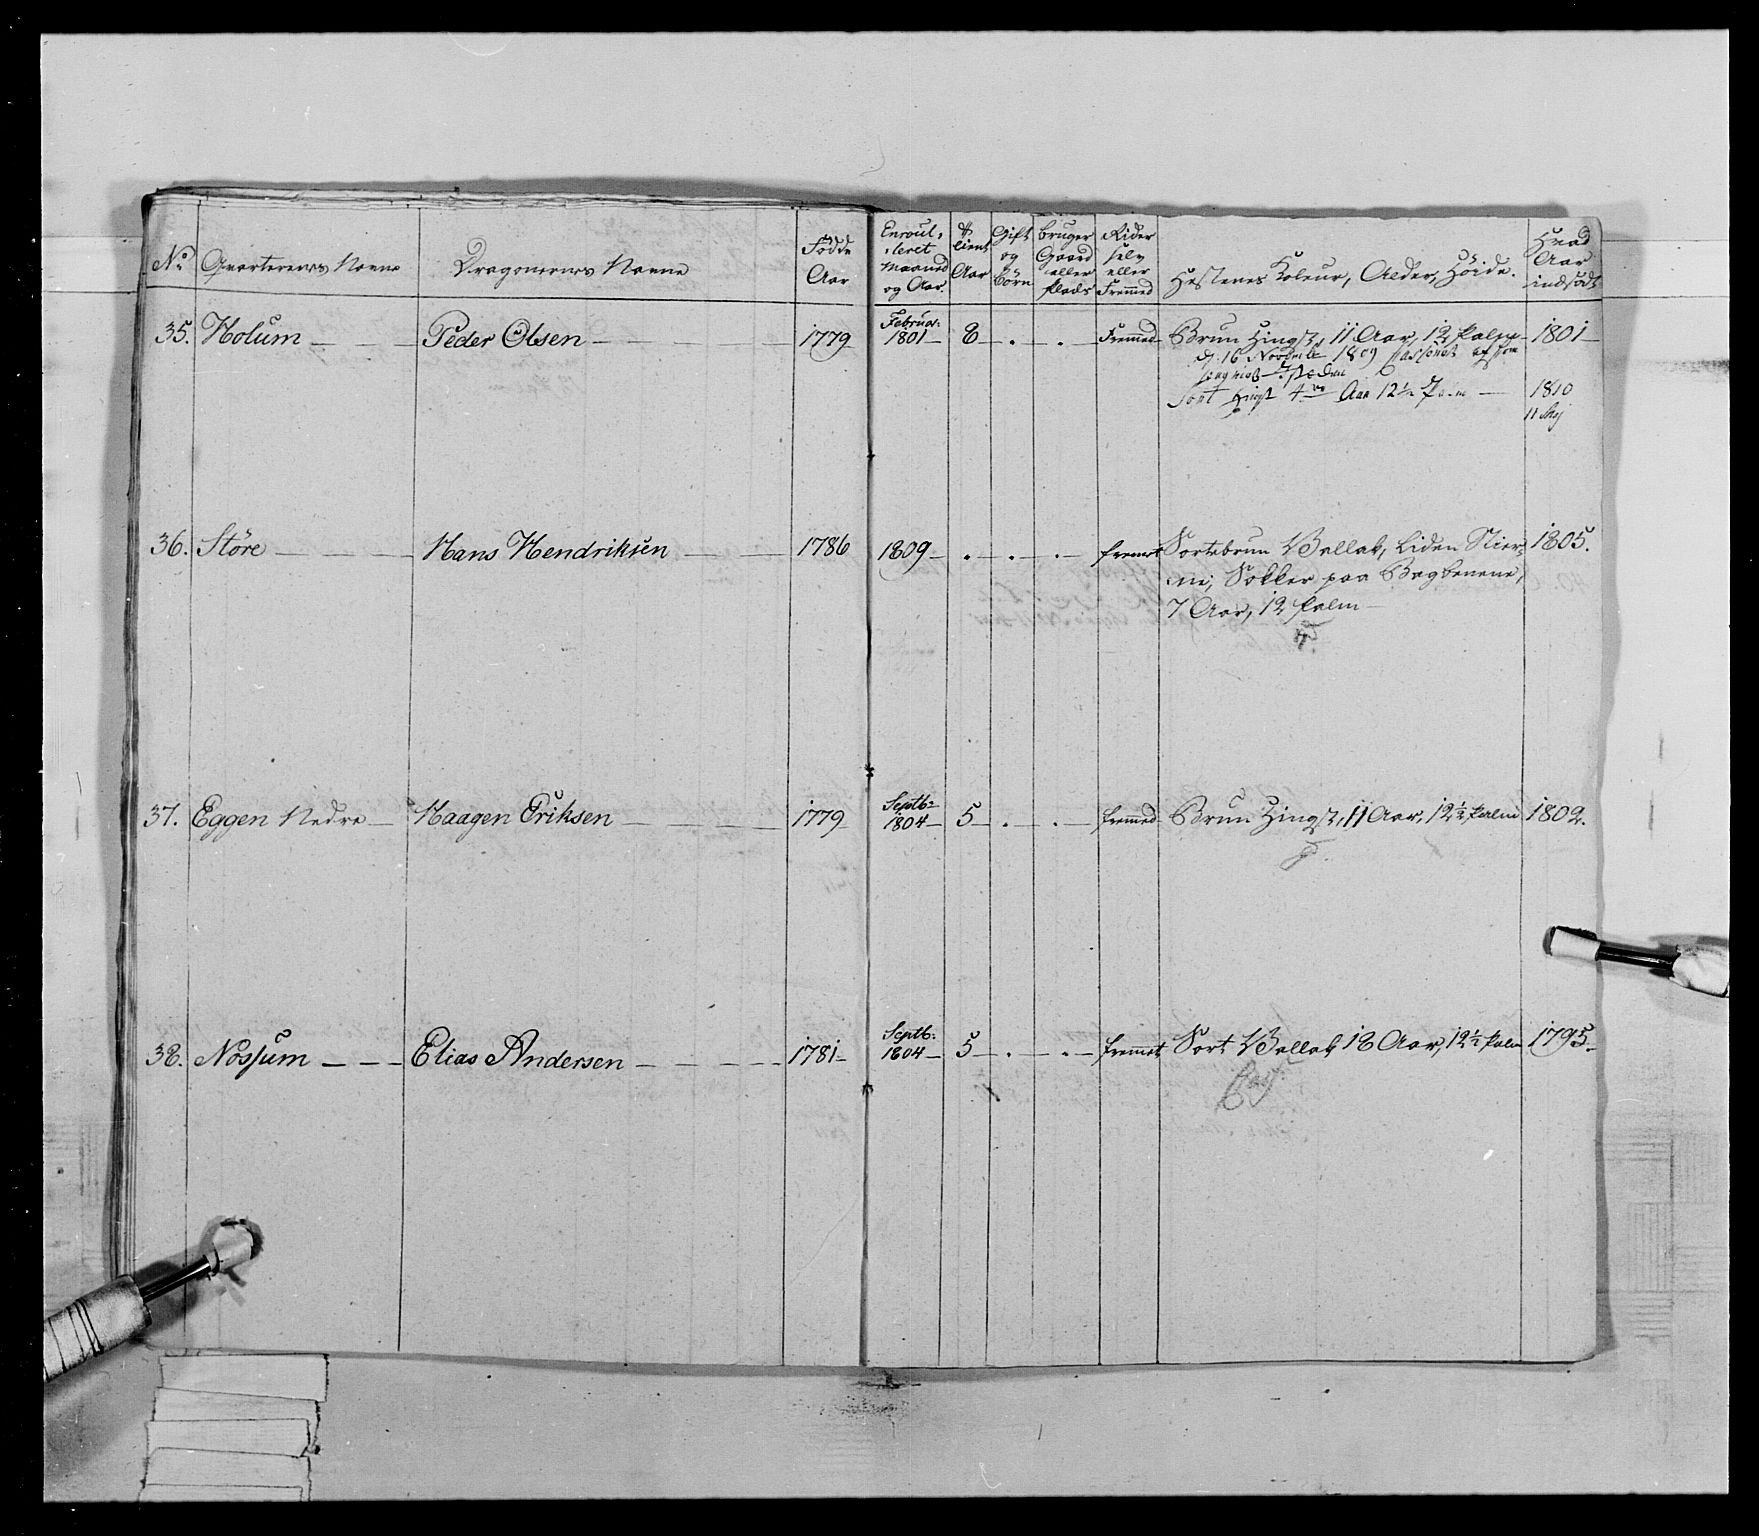 No Qvarterenes Navne Dragonernes Navne Födde Aar Enroulleret Maaned og Aar. Tient Aar Gift og Börn bruger Gaard eller plads Rider selv eller Fremmed Hestenes Koleur, Alder, Höide. Hvad Aar indsadt
35. Holum Peder Olsen 1779 Februar: 1801 8 . . Fremmed Brun Hingst, 11 Aar, 12 Palm 1801
d: 16 Novemb 1809
Sort Hingst 4re Aar 12½ Palm 1810
11
36. Störe Hans Hendriksen 1786 1809 . . . fremet Sortebrun Vallak, Liden Stier 1805.
ne, Sokker paa Bagbenene,
7 Aar, 12 Palm
37. Eggen Nedre Haagen Eriksen 1779 Septb: 1804 5 . . fremmed Brun Hingst, 11 Aar, 12½ Palm 1802.
38. Nossum Elias Andersen 1781 Septb: 1804 5 . . fremmet Sort Vallak 18 Aar, 12½ Palm 1795.